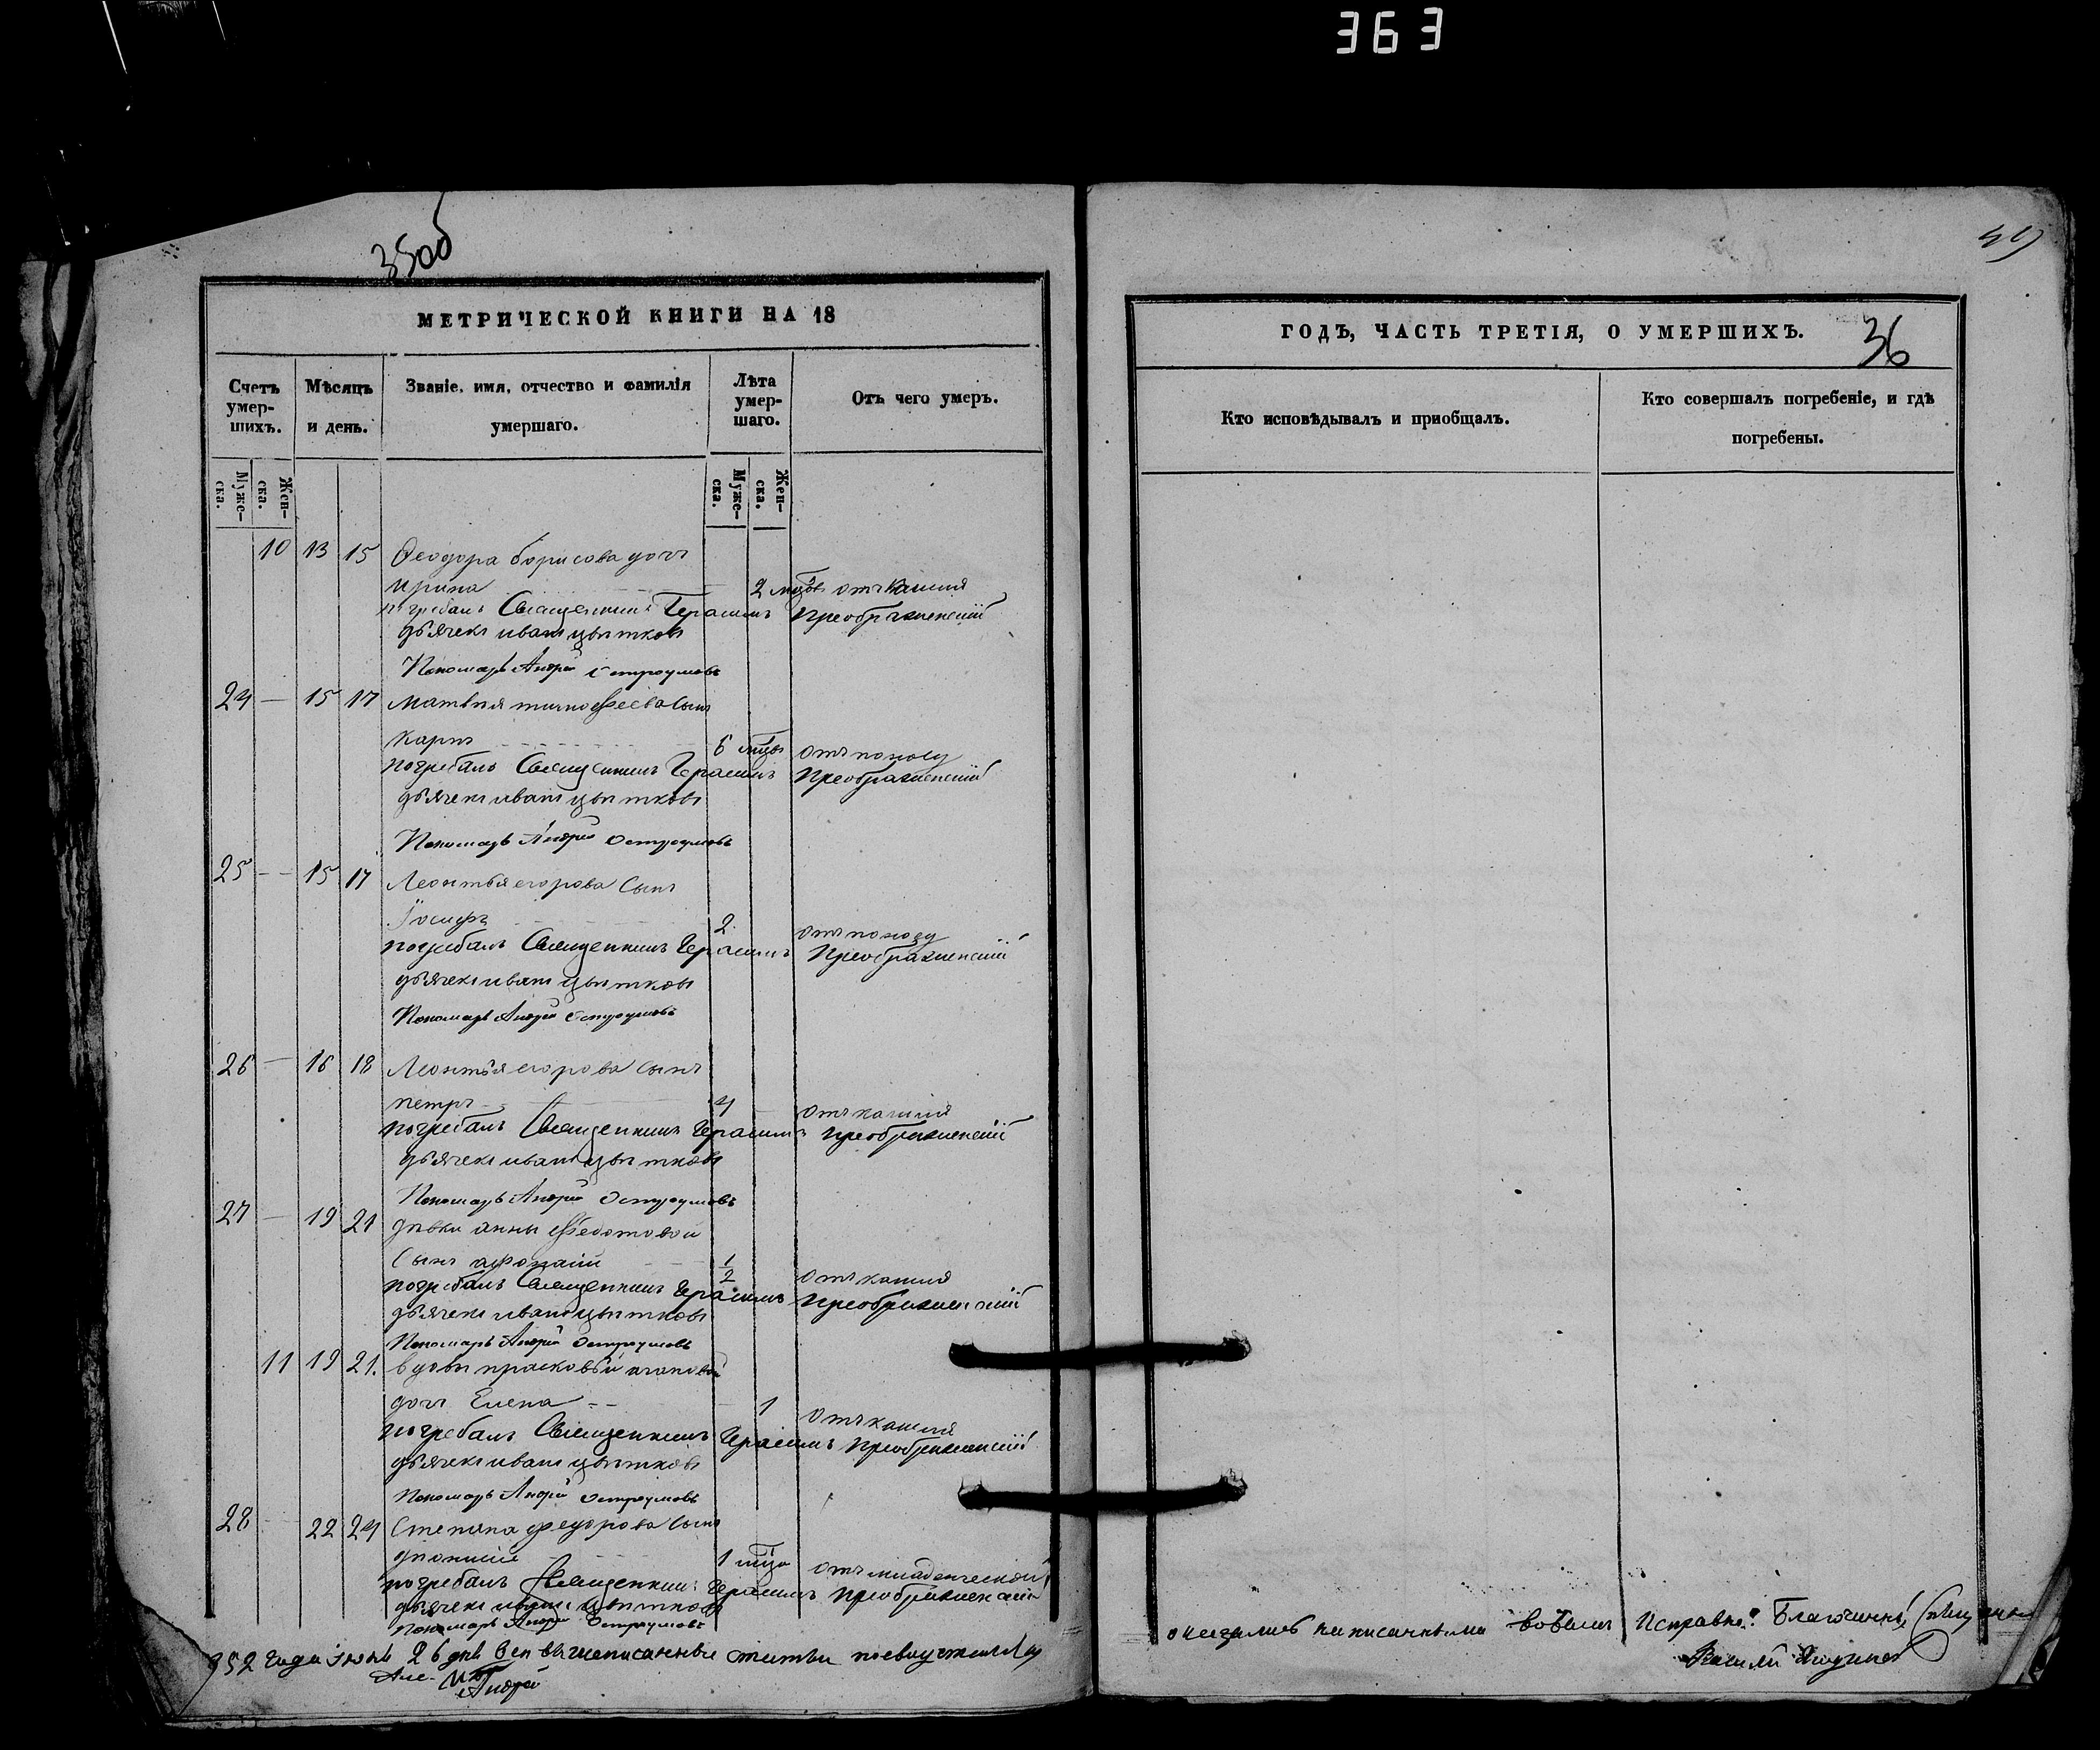 363
35об
МЕТРИЧЕСКОЙ КНИГИ НА 18
Счетъ умер-шихъ.
Мѣсяцъ и день.
Званіе, имя, отчество и фамилія умершаго.
Лѣта умер-шаго.
Отъ чего умеръ.
Муже-ска. Жен-ска.
Муже-ска. Жен-ска.
10 13 15 Ѳеодора борисова дочь
ирина 2 отъ кашля
погребалъ Священникъ Герасимъ Преображенскій
дьячекъ иванъ цвѣтковъ
Пономарь Андрей Остроумовъ
24 — 15 17 матвѣя тимофеева сынъ
карпъ 6 отъ поносу
погребалъ Священникъ Герасимъ Преображенскій
дьячекъ иванъ цвѣтковъ
Пономарь Андрей Остроумовъ
25 — 15 17 Леонтья егорова сынъ
Іосифъ 2 отъ поносу
погребалъ Священникъ Герасимъ Преображенскій
дьячекъ иванъ цвѣтковъ
Пономарь Андрей Остроумовъ
26 — 16 18 Леонтья егорова сынъ
петръ 4 отъ кашля
погребалъ Священникъ Герасимъ Преображенскій
дьячекъ иванъ цвѣтковъ
Пономарь Андрей Остроумовъ
27 — 19 21 дѣвки анны Федотовой
сынъ афонасій 1/2 отъ кашля
погребалъ Священникъ Герасимъ Преображенскій
дьячекъ иванъ цвѣтковъ
Пономарь Андрей Остроумовъ
11 19 21. вдовы прасковьи агаповой
дочь Елена 1 отъ кашля
погребалъ Священникъ Герасимъ Преображенскій
дьячекъ иванъ цвѣтковъ
Пономарь Андрей Остроумовъ
28 — 22 24 Степана федорова сынъ
діонисій 1 отъ младенческой
погребалъ Священникъ Герасимъ Преображенскій
дьячекъ иванъ цвѣтковъ
Пономарь Андрей Остроумовъ
852 года іюня 26 дня вышеписанные статьи
ГОДЪ, ЧАСТЬ ТРЕТІЯ, О УМЕРШИХЪ.
36
Кто исповѣдывалъ и пріобщалъ.
Кто совершалъ погребеніе, и гдѣ погребены.
оказались написанными Исправно. Благочинный
Василій